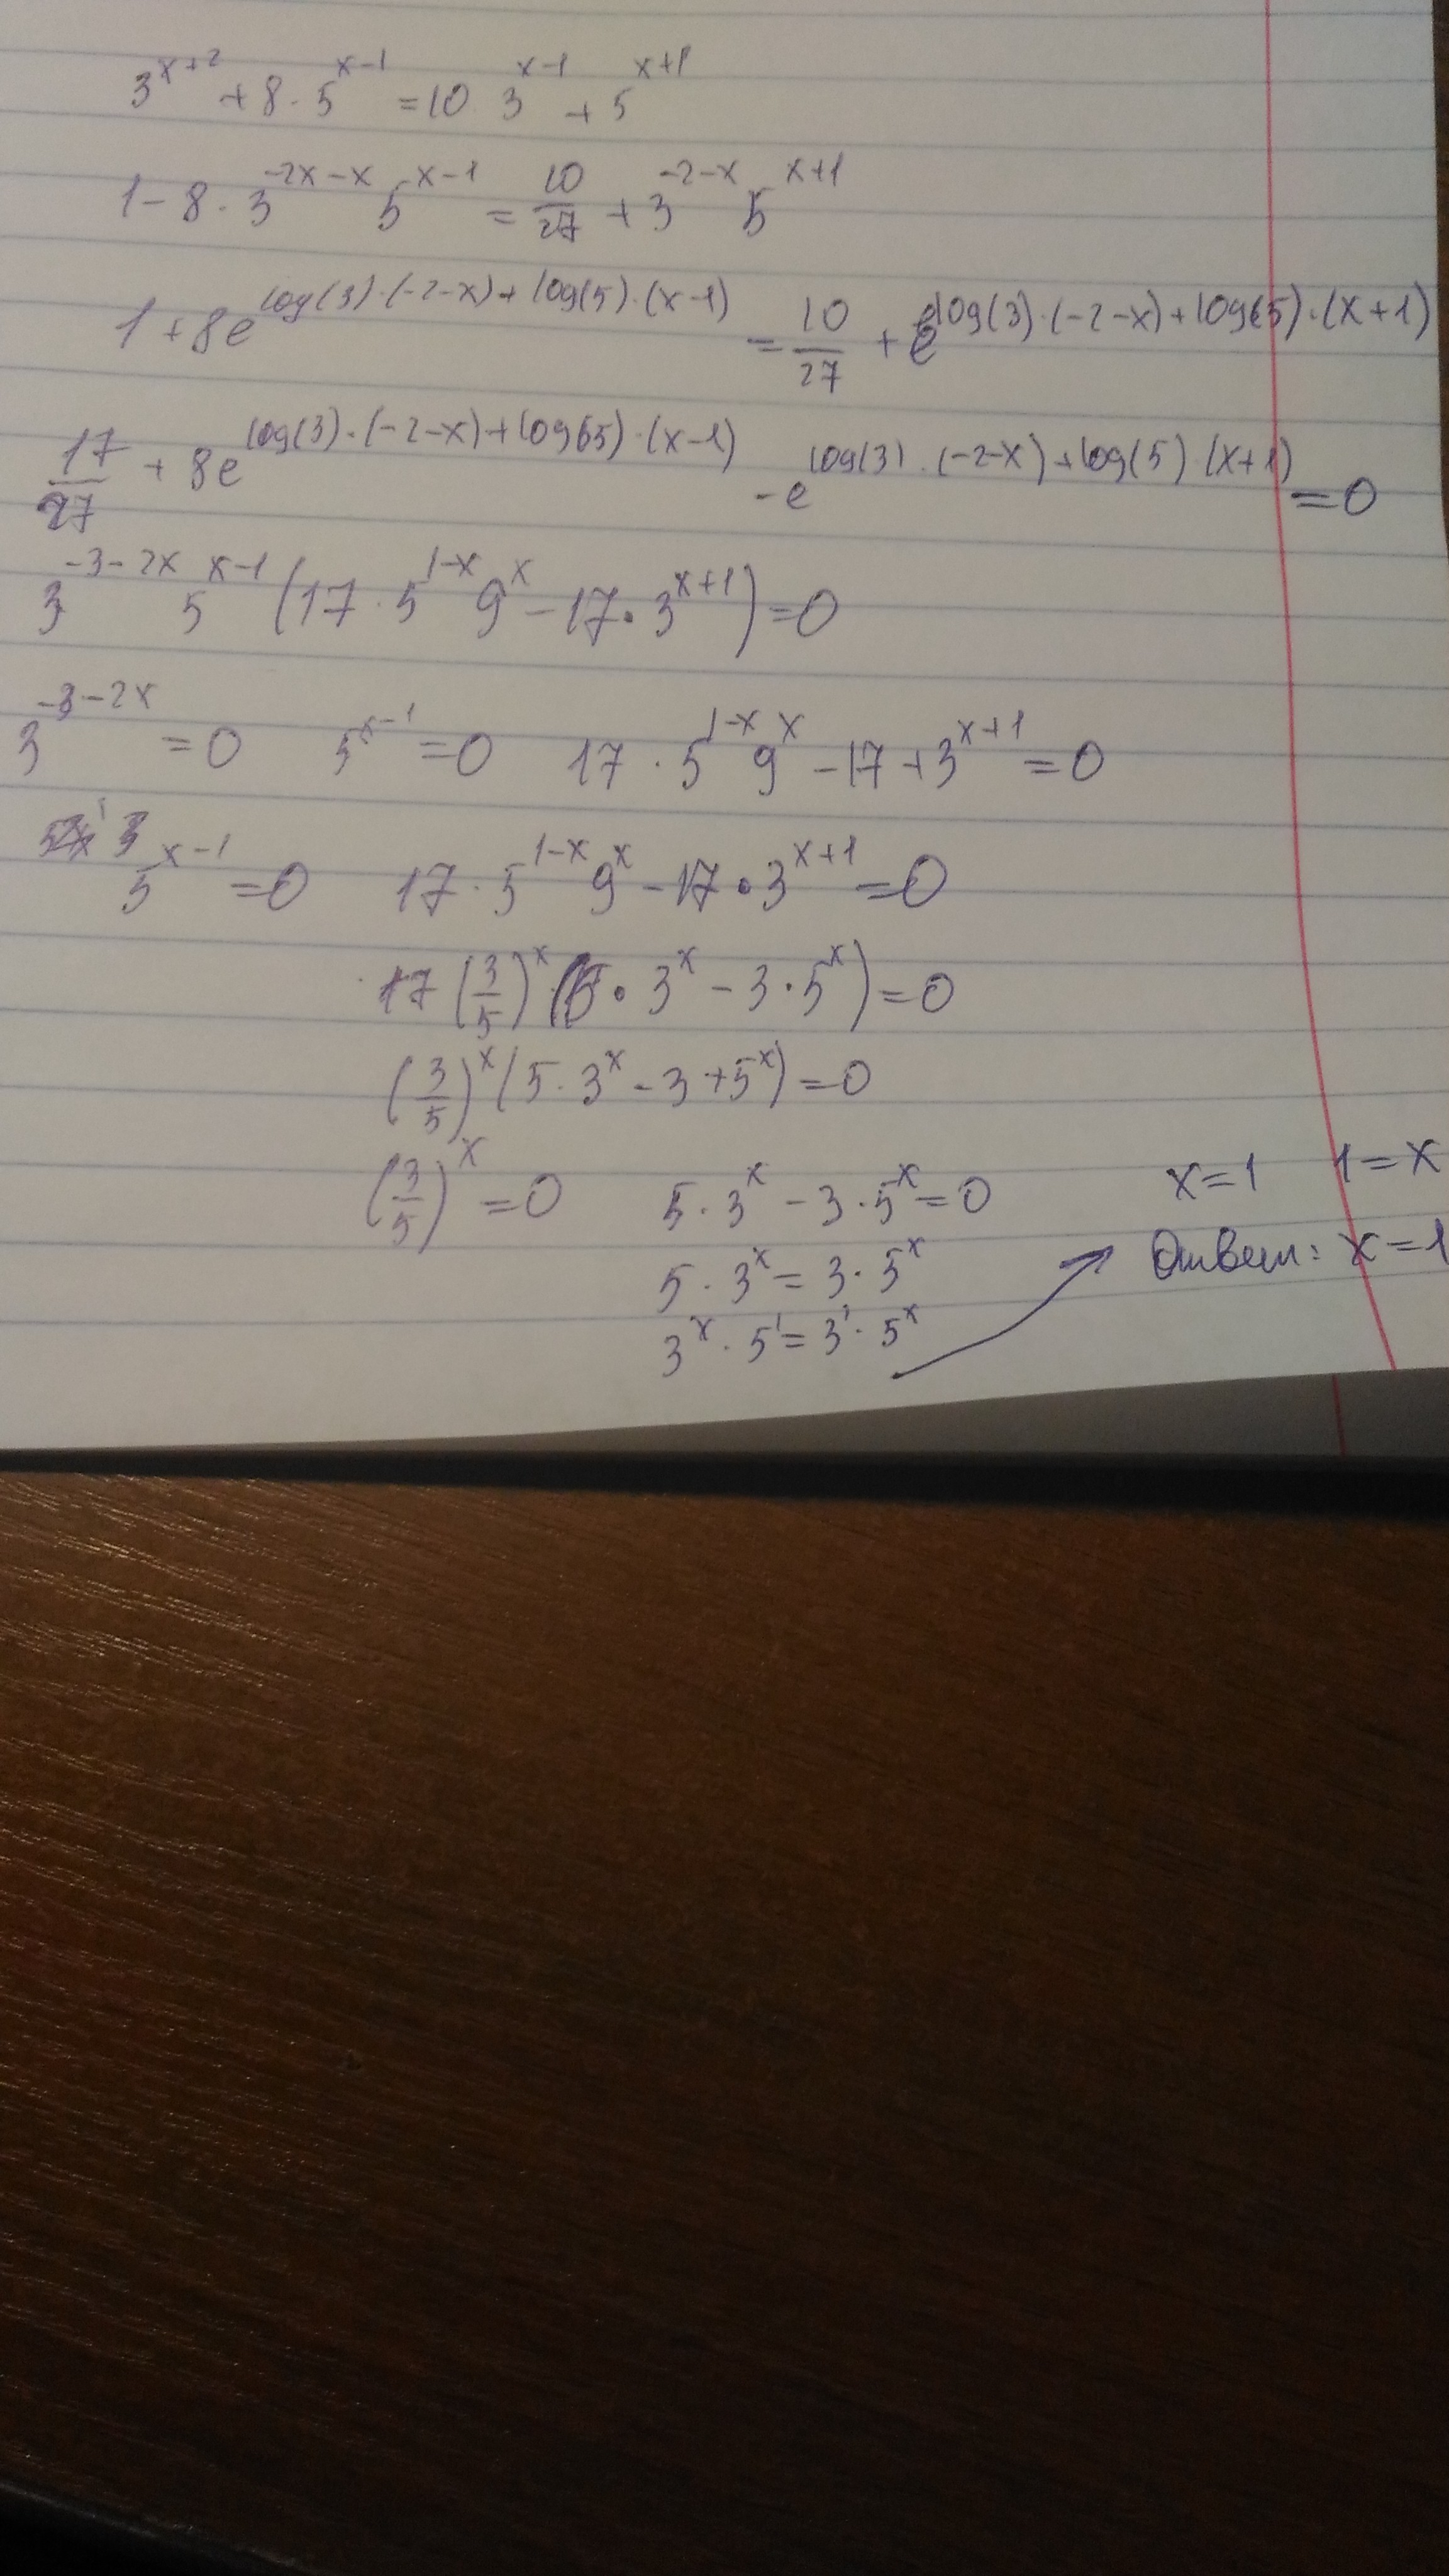 3^{x+2} + 8 · 5^{x-1} = 10 · 3^{x-1} + 5^{x+1}
1 - 8 · 3^{-2x-x} 5^{x-1} = 10/27 + 3^{-2-x} 5^{x+1}
1 + 8e^{log(3)·(-2-x)+log(5)·(x-1)} = 10/27 + e^{log(3)·(-2-x)+log(5)·(x+1)}
17/27 + 8e^{log(3)·(-2-x)+log(5)·(x-1)} - e^{log(3)·(-2-x)+log(5)·(x+1)} = 0
3^{-3-2x} 5^{x-1} (17 · 5^{1-x} 9^x - 17 · 3^{x+1}) = 0
3^{-3-2x} = 0 5^{x-1} = 0 17 · 5^{1-x} 9^x - 17 + 3^{x+1} = 0
5^{x-1} = 0 17 · 5^{1-x} 9^x - 17 · 3^{x+1} = 0
17 (3/5)^x (5 · 3^x - 3 · 5^x) = 0
(3/5)^x (5 · 3^x - 3 + 5^x) = 0
(3/5)^x = 0 5 · 3^x - 3 · 5^x = 0 x = 1 1 = x
5 · 3^x = 3 · 5^x Ответ: x = 1
3^x · 5^1 = 3^1 · 5^x